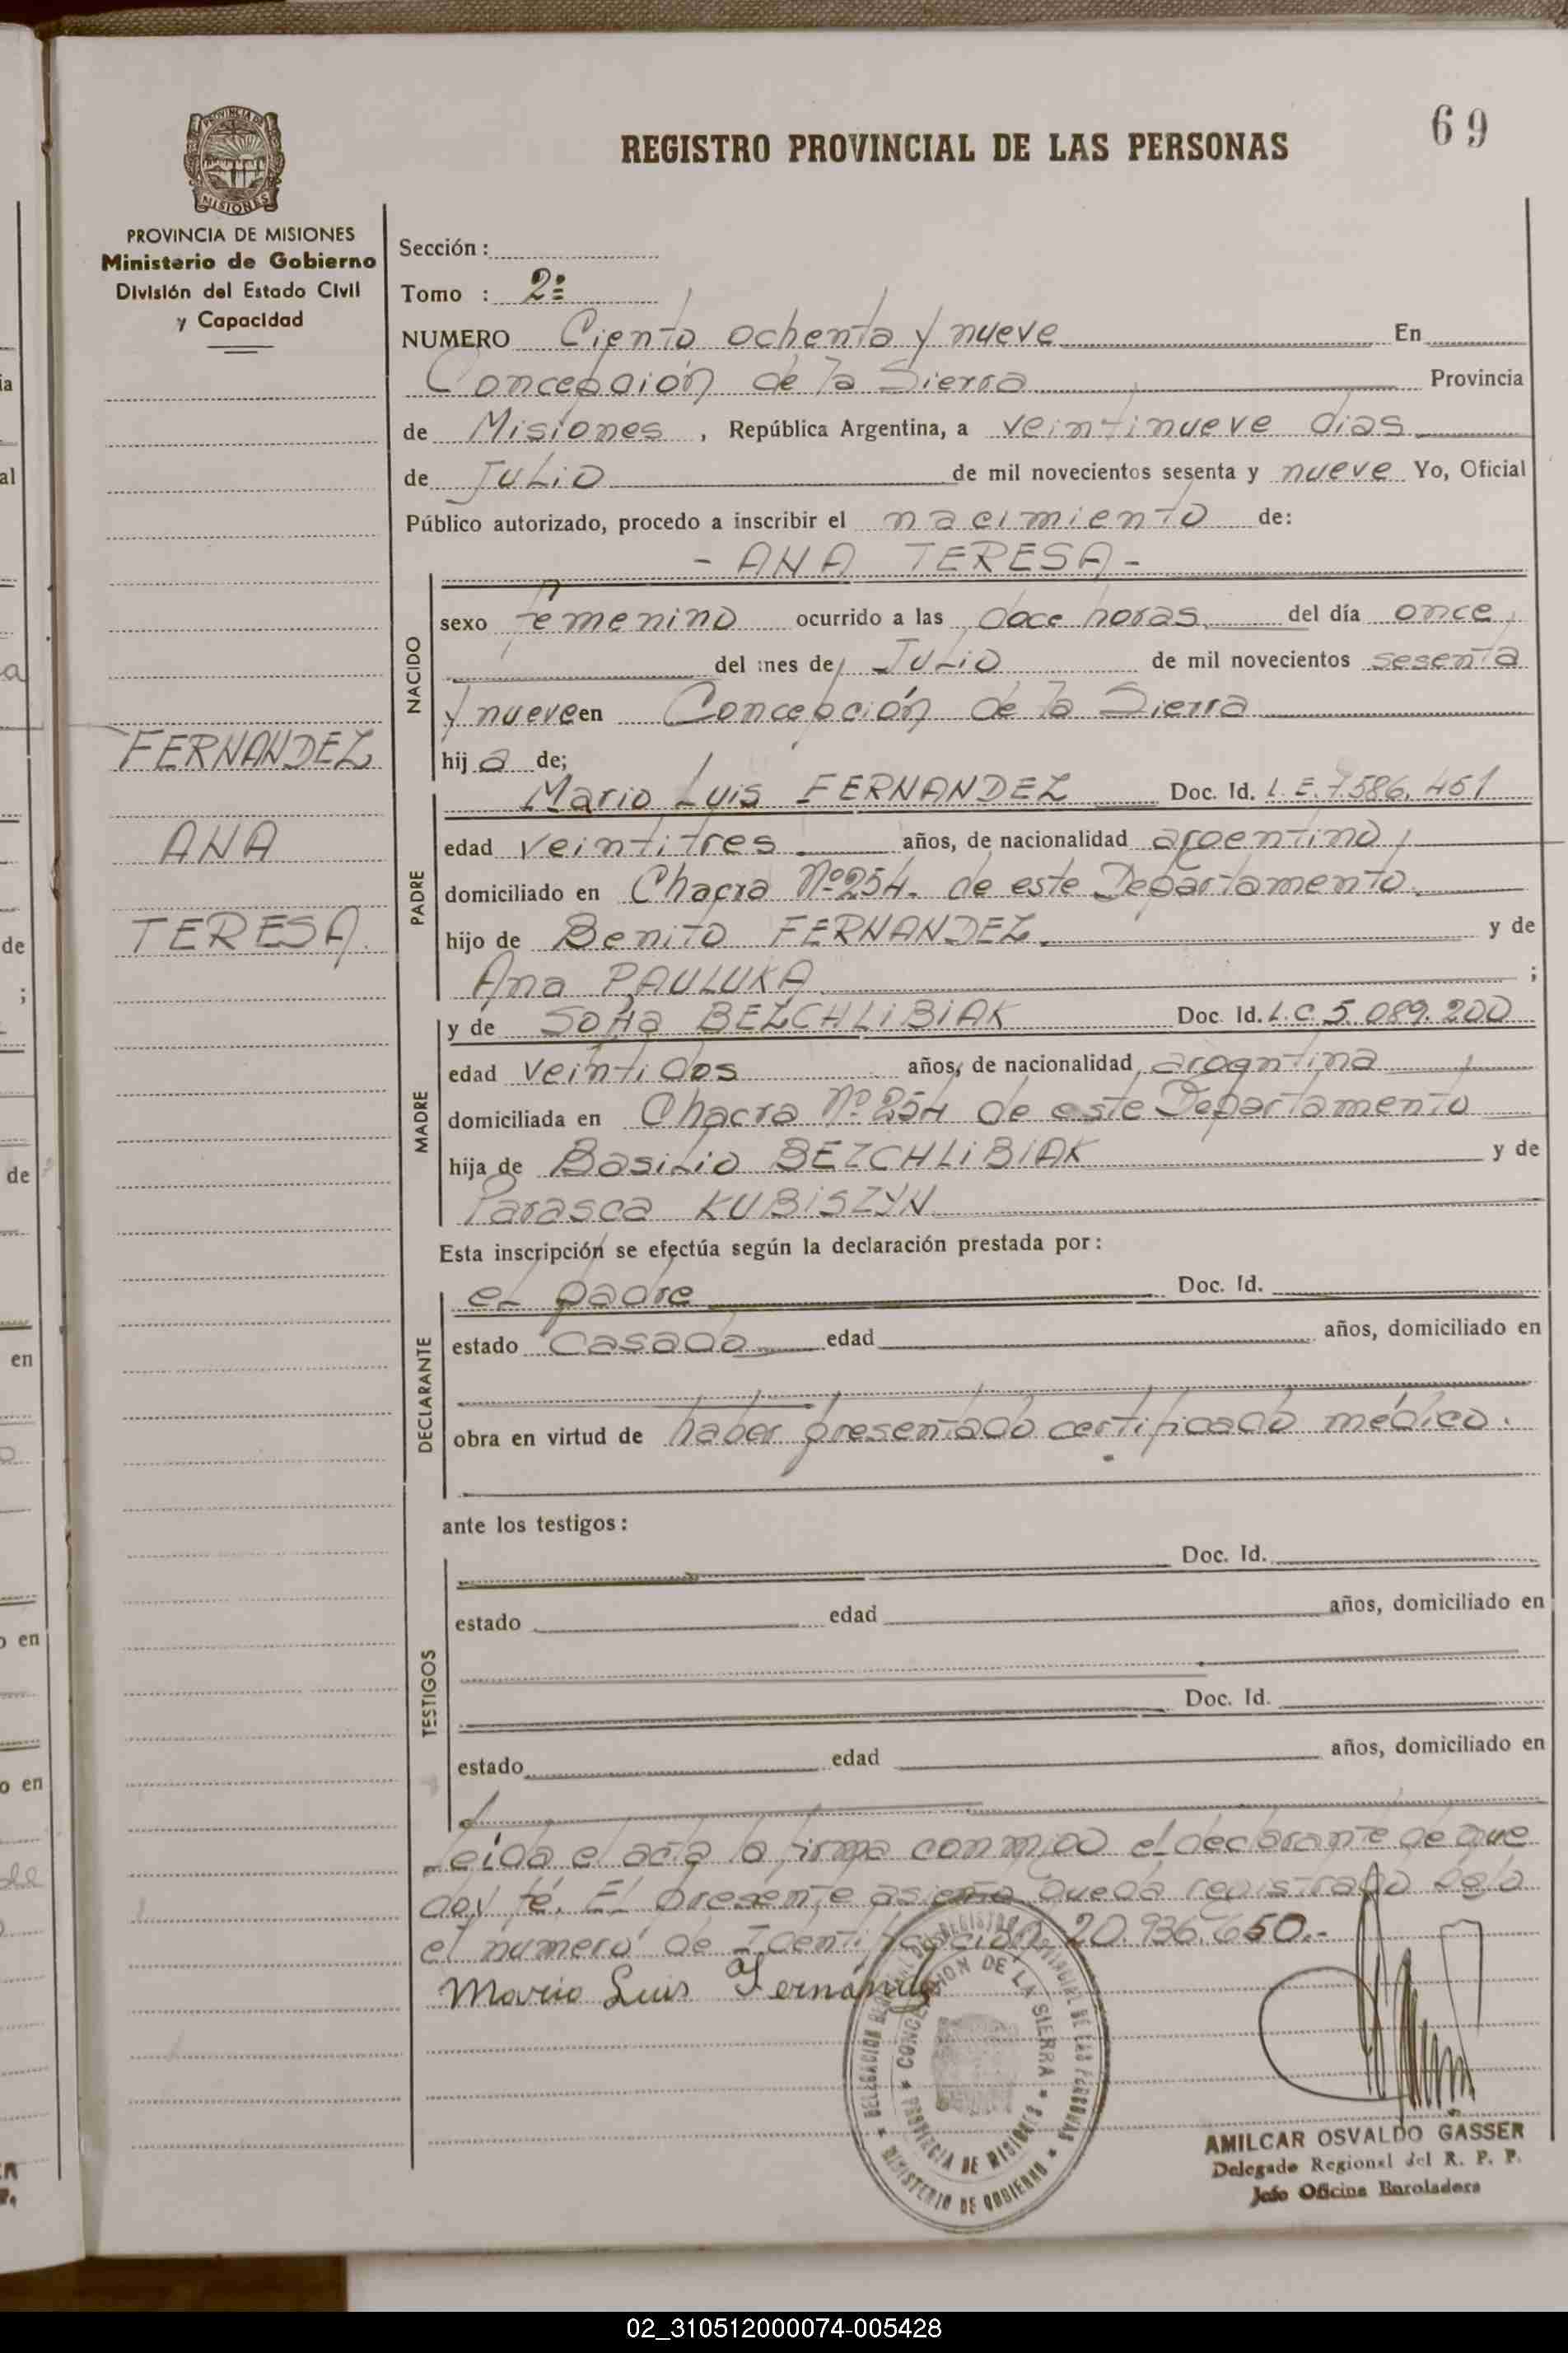 69
REGISTRO PROVINCIAL DE LAS PERSONAS
PROVINCIA DE
MISIONES
PROVINCIA DE MISIONES
Ministerio de Gobierno
División del Estado Civil
y Capacidad
FERNANDEZ
ANA
TERESA.
Sección:
Tomo : 2º
NUMERO Ciento ochenta y nueve En
Concepción de la Sierra Provincia
de Misiones, República Argentina, a veintinueve dias
de Julio de mil novecientos sesenta y nueve Yo, Oficial
Público autorizado, procedo a inscribir el nacimiento de:
- ANA TERESA -
NACIDO
sexo femenino ocurrido a las doce horas. del día once
del mes de Julio de mil novecientos sesenta
y nueve en Concepción de la Sierra
hij a de;
PADRE
Mario Luis FERNANDEZ Doc. Id. L.E. 7.586.461
edad veintitres años, de nacionalidad argentino,
domiciliado en Chacra Nº 254. de este Departamento.
hijo de Benito FERNANDEZ y de
Ana PAULUKA ;
MADRE
y de Sofia BEZCHLIBIAK Doc. Id. L.C. 5.089.200
edad veintidos años, de nacionalidad argentina
domiciliada en Chacra Nº 254 de este Departamento
hija de Basilio BEZCHLIBIAK y de
Parasca KUBISZYN
Esta inscripción se efectúa según la declaración prestada por:
DECLARANTE
el padre Doc. Id.
estado casado edad años, domiciliado en
obra en virtud de haber presentado certificado médico.
ante los testigos:
TESTIGOS
Doc. Id.
estado edad años, domiciliado en
Doc. Id.
estado edad años, domiciliado en
Leida el acta la firma conmigo el declarante de que
doy fé. El presente asiento queda registrado bajo
el número de Identificación 20.936.650.-
Mario Luis Fernández
CONCEPCION DE LA SIERRA
PROVINCIA DE MISIONES
MINISTERIO DE GOBIERNO
AMILCAR OSVALDO GASSER
Delegado Regional del R. P. P.
Jefe Oficina Enroladora
02_310512000074-005428